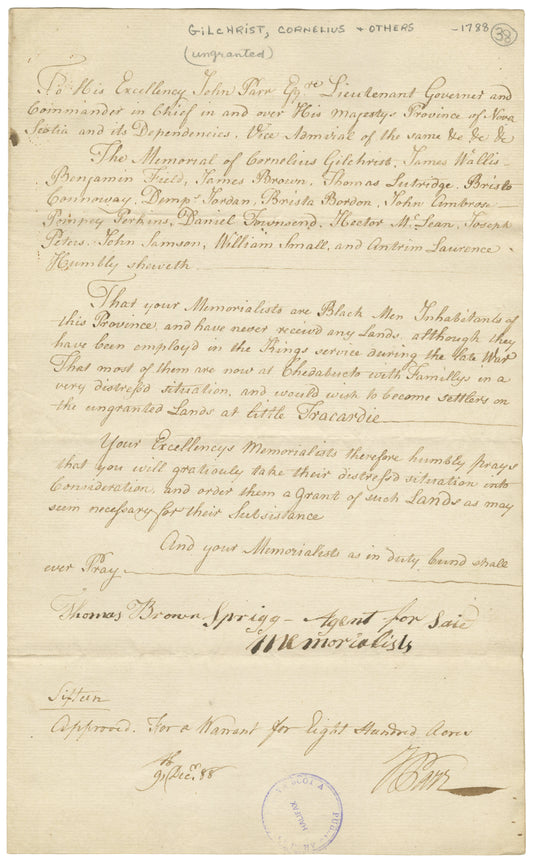 GILCHRIST, CORNELIUS + OTHERS
-1788
38
(ungranted)
To His Excellency John Parr Esqre Lieutenant Governer and
Commander in Chief in and over His Majestys Province of Nova
Scotia and its Dependencies, Vice Admiral of the same &c &c &c
The Memorial of Cornelius Gilchrist, James Wallis
Benjamin Field, James Brown, Thomas Lutridge, Bristo
Connoway, Dempy Jordan, Brista Bordon, John Ambrose
Pompey Perkins, Daniel Townsend, Hector McLean, Joseph
Peters, John Samson, William Small, and Antrim Laurence
Humbly sheweth
That your Memorialists are Black Men Inhabitants of
this Province, and have never receivd any Lands, although they
have been employd in the Kings service during the late War
That most of them are now at Chedabucto with Famillys in a
very distressd situation, and would wish to become settlers on
the ungranted Lands at little Tracardie
Your Excellencys Memorialists therefore humbly prays
that you will gratiouly take their distressd situation into
Consideration, and order them a grant of such Lands as may
seem necessary for their Subsistance
And your Memorialists as in duty bund shall
ever Pray
Thomas Brown Sprigg - Agent for Said
Memorialists
Sifteen
Approved. For a Warrant for Eight Hundred Acres
9th Decr. 88
JParr
SCOTIA
HALIFAX
PUBL